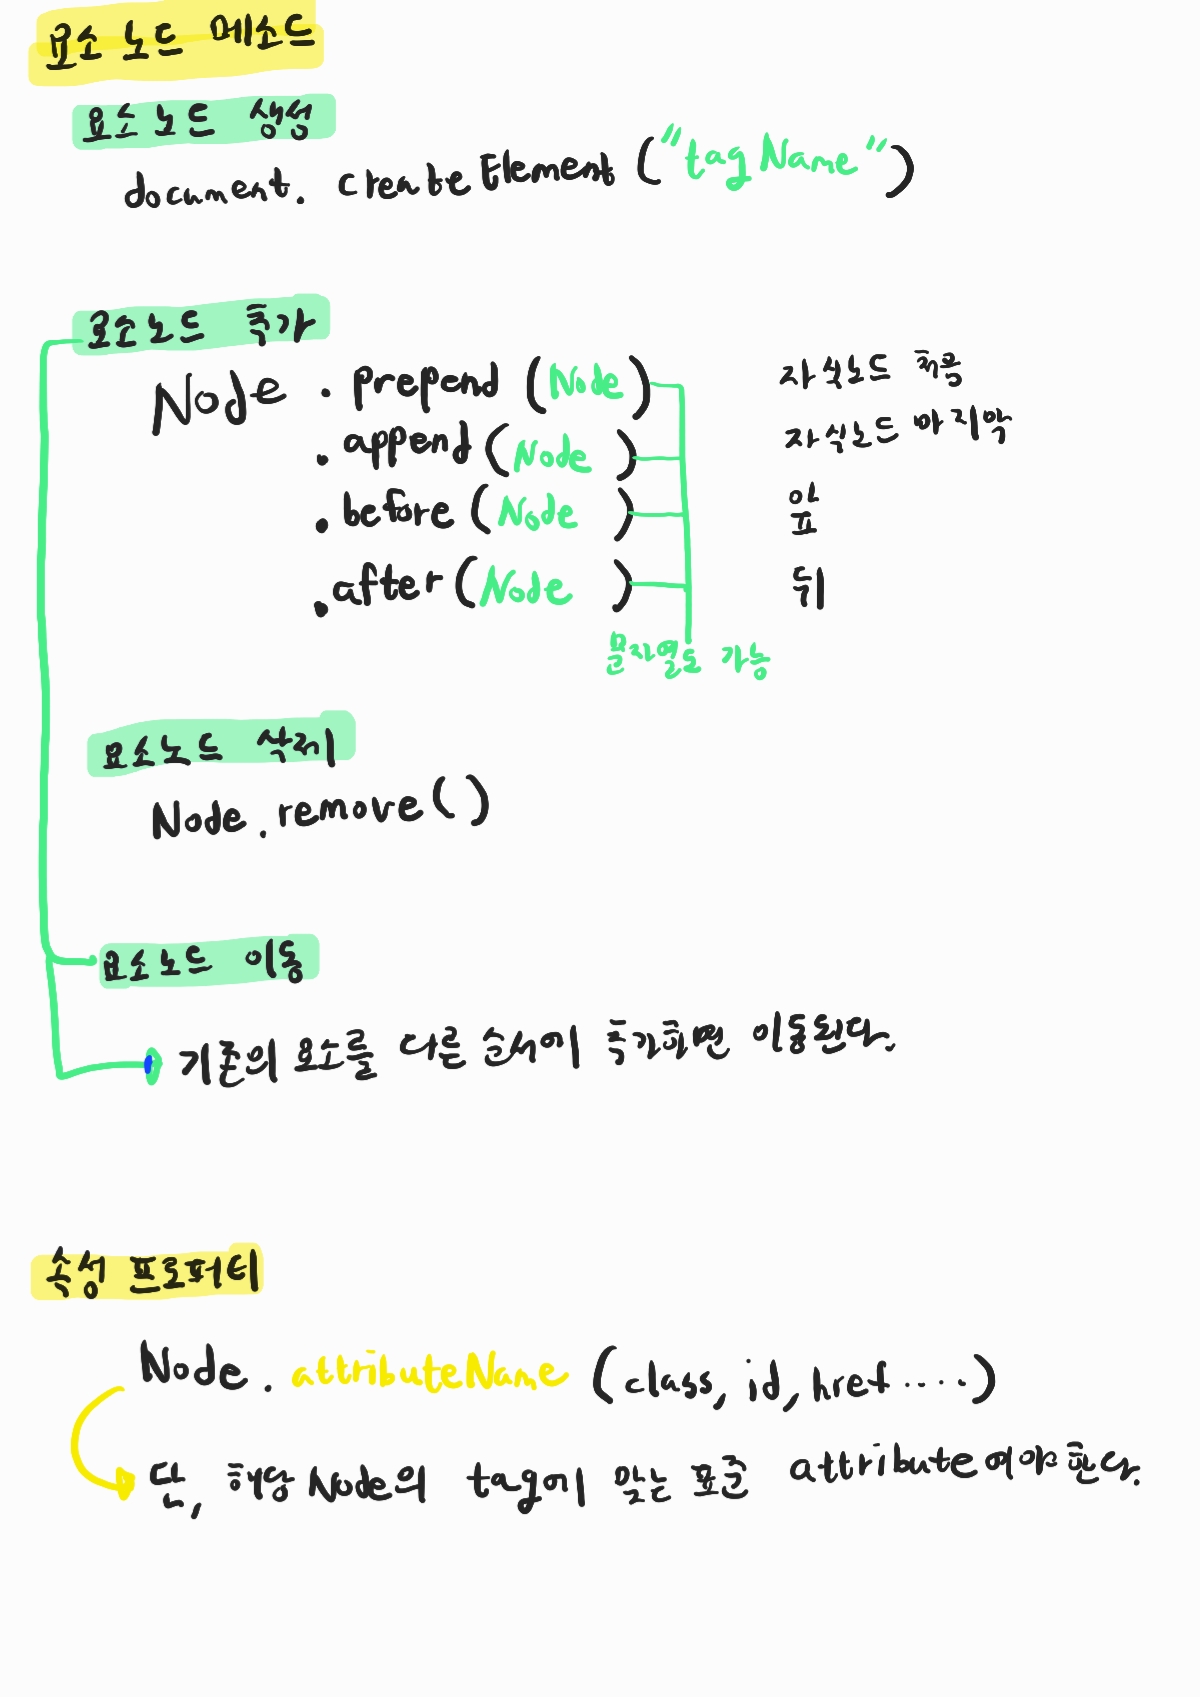 요소 노드 메소드
요소 노드 생성
document. createElement ("tagName")
요소노드 추가
Node . prepend (Node) 자식노드 처음
. append (Node) 자식노드 마지막
. before (Node) 앞
. after (Node) 뒤
문자열도 가능
요소노드 삭제
Node. remove()
요소노드 이동
기존의 요소를 다른 순서에 추가하면 이동된다.
속성 프로퍼티
Node. attributeName (class, id, href ·····)
단, 해당 Node의 tag에 맞는 표준 attribute여야 한다.